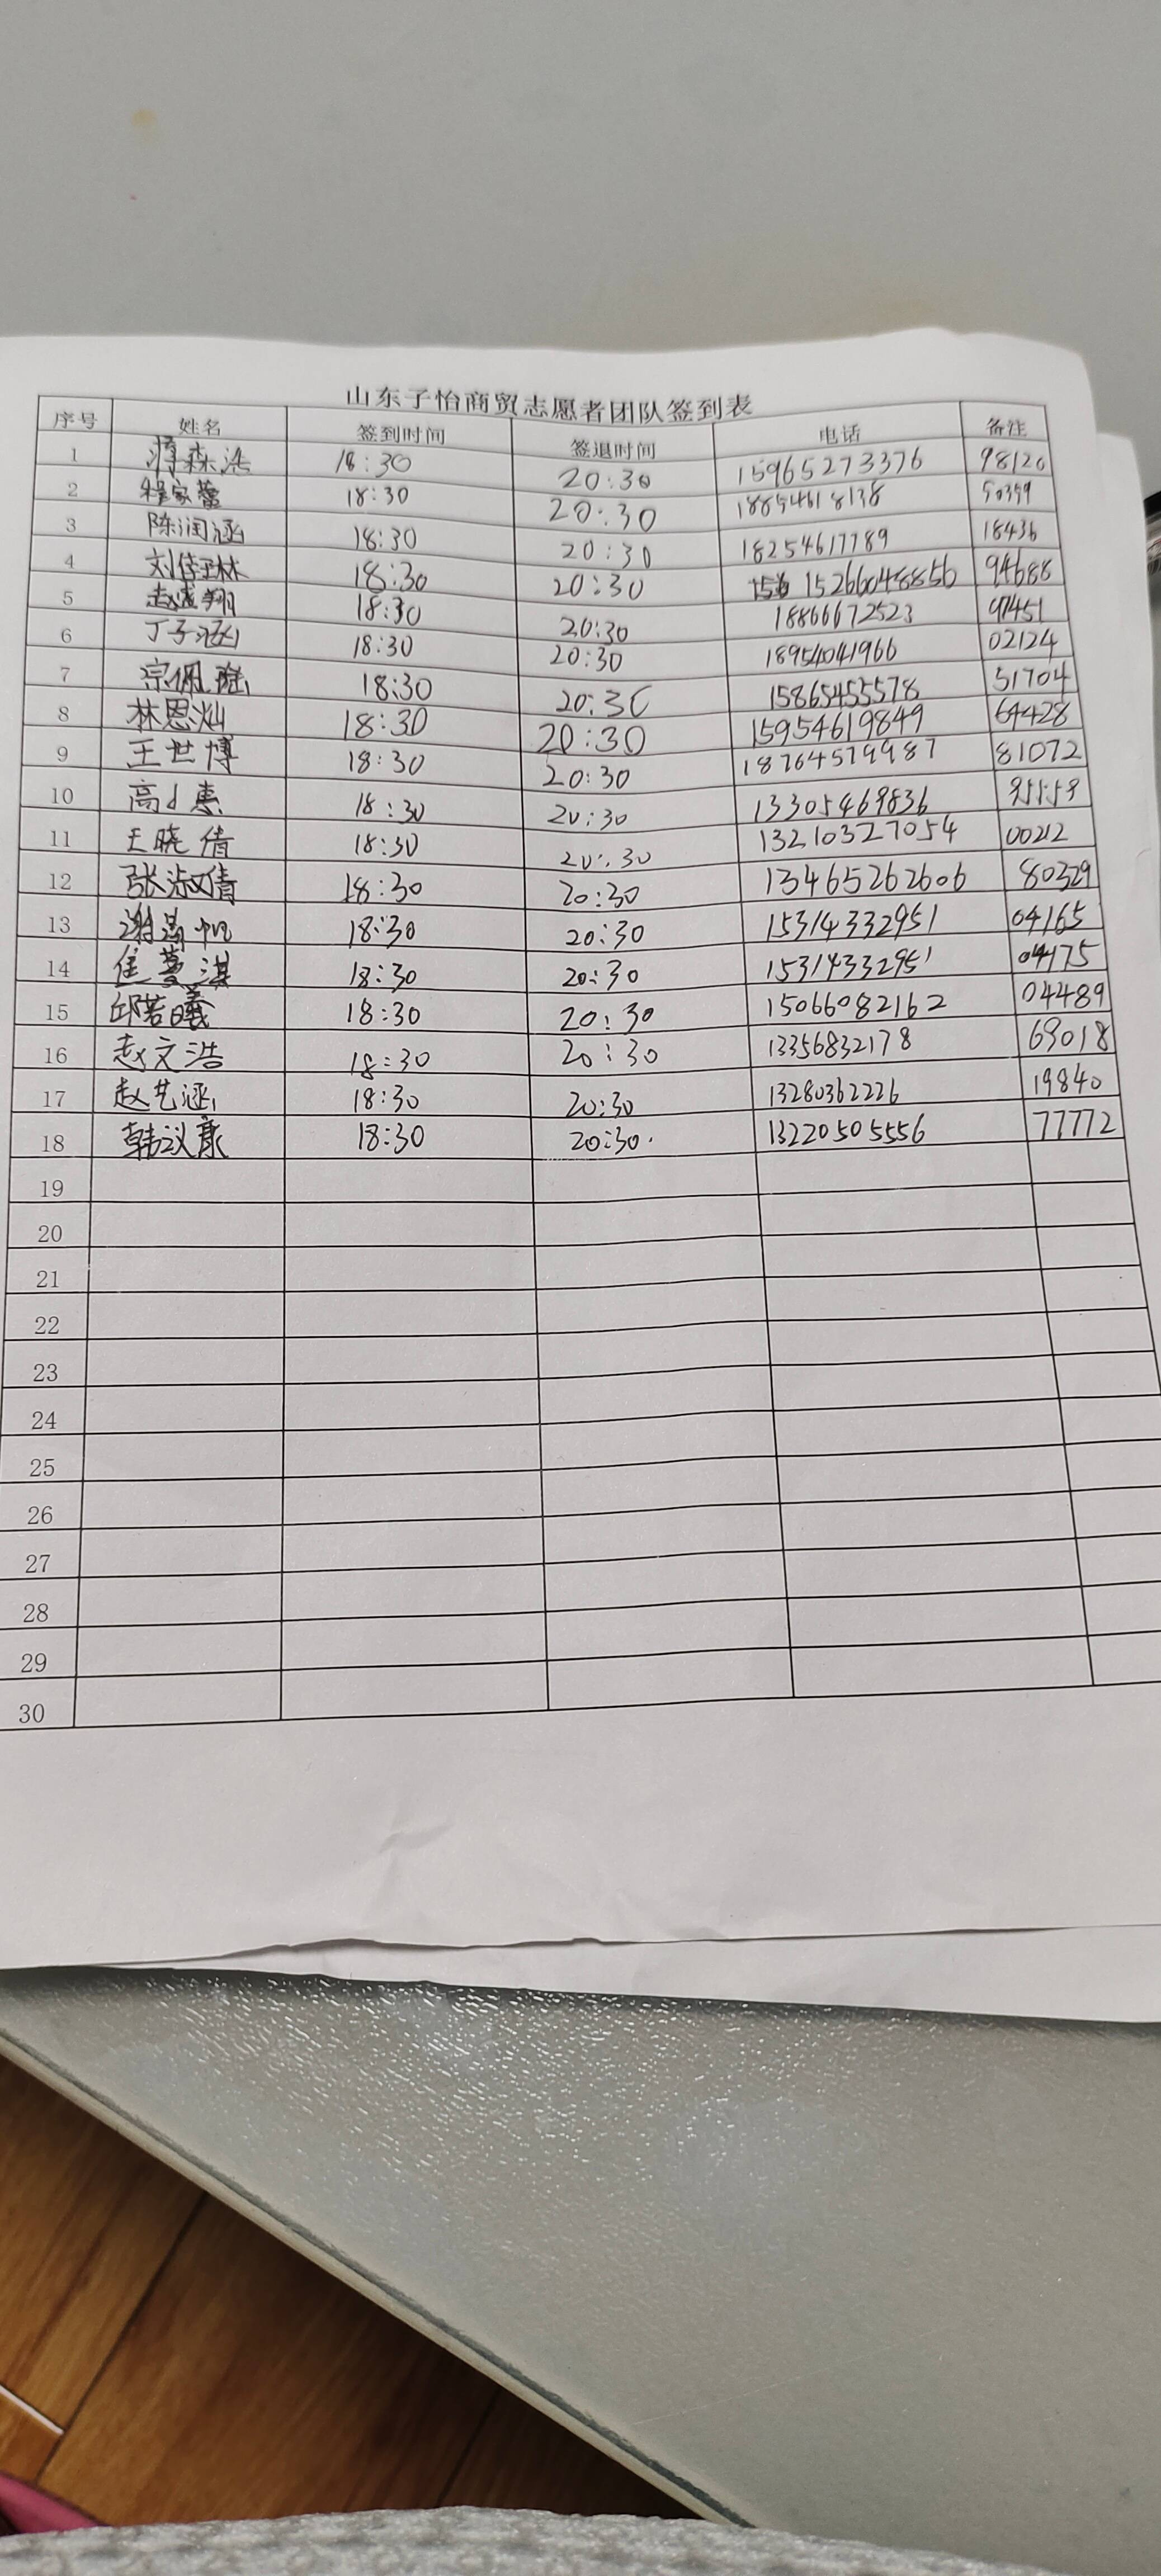 山东子怡商贸志愿者团队签到表
序号 姓名 签到时间 签退时间 电话 备注
1 薄森浩 18:30 20:30 15965273376 98120
2 程家蕾 18:30 20:30 18854618138 50359
3 陈润涵 18:30 20:30 18254617789 18436
4 刘佳琳 18:30 20:30 15266048856 94688
5 赵诚翔 18:30 20:30 18866672523 97451
6 丁子涵 18:30 20:30 18954041966 02124
7 宗佩 18:30 20:30 15865455578 51704
8 林恩灿 18:30 20:30 15954619849 64428
9 王世博 18:30 20:30 18764579987 81072
10 高小惠 18:30 20:30 13305469836
11 王晓倩 18:30 20:30 13210327054 00212
12 张淑倩 18:30 20:30 13465262606 80329
13 谢 帆 18:30 20:30 15314332951 04165
14 淇 18:30 20:30 15314332951 04175
15 邱若曦 18:30 20:30 15066082162 04489
16 赵文浩 18:30 20:30 13356832178 69018
17 赵艺涵 18:30 20:30 13280362226 19840
18 韩议康 18:30 20:30. 13220505556 77772
19
20
21
22
23
24
25
26
27
28
29
30